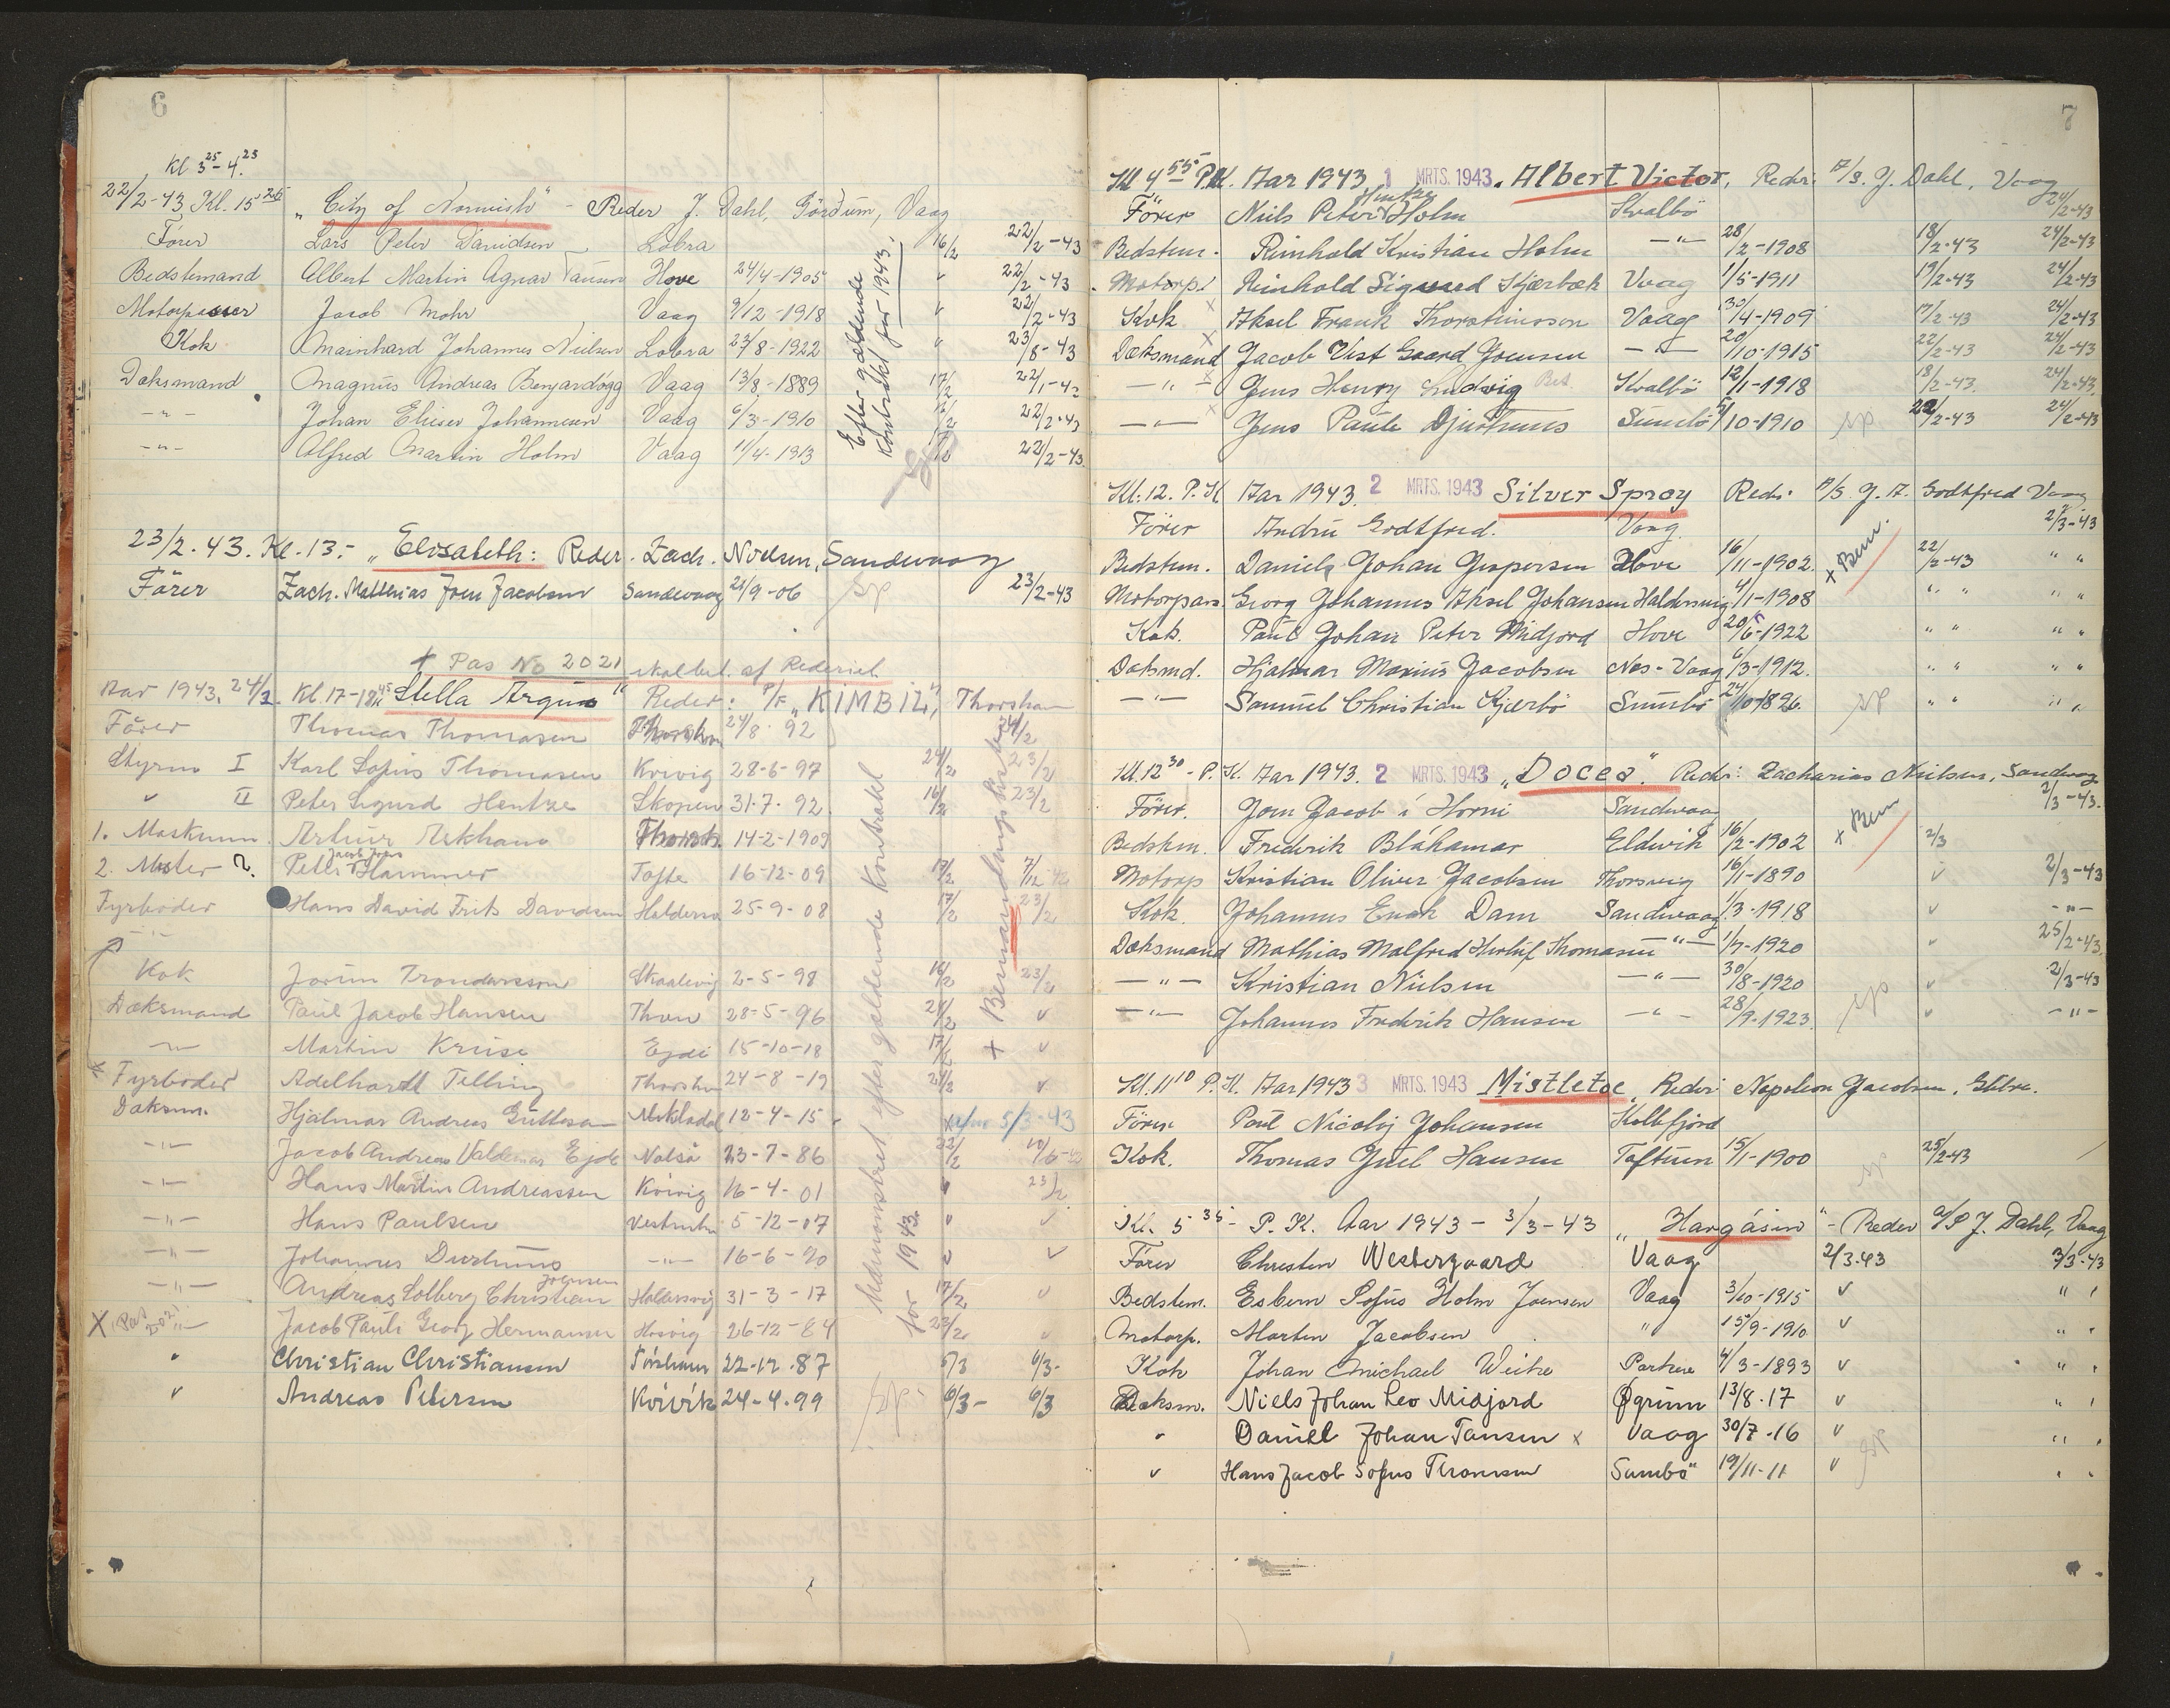 6
Kl 3 25 - 4 23
22/2-43 Kl. 15 25 „City of Norwish" - Reder J. Dahl, Gördum, Vaag
Förer Lars Peter Davidsen Lobra 16/2 22/2-43
Bedstemand Albert Martin Agnar Tausen Hove 24/4-1905 " 22/2-43
Motorpasser Jacob Mohr Vaag 9/12-1918 " 22/2-43
Kok Mainhard Johannes Nielsen Lobra 8-1922 "
Daksmand Magnus Andreas Vaag 13/8-1889 17/2
-"- Johan Elieser Johannesen Vaag 6/3-1910 22/2-43
-"- Alfred Martin Holm Vaag 11/4-1913 22/2-43
Efter gældende
Kontrakt for 1943.
23/2-43. Kl. 13.- „Elisabeth: Reder. Zach. Nielsen, Sandevaag
Förer Zach. Matthias Joen Jacobsen Sandevaag 21/9-06 23/2-43
+ Pas No 2021 af Rederiet
Aar 1943. 24/2 Kl 17-18 45 „Stella Argus" Reder: P/F „KIMBIL", Thorshavn
Förer Thomas Thomasen Thorshavn 24/8 92 24/2
Styrm I Karl Sofus Thomasen Kvivig 28-6-97 24/2 23/2
" II Peter Sigurd Hentze Skopen 31.7.92. 16/2 23/2
1. Maskinm. Arthur Thorsh. 14-2-1909
2. Mester ? Peter Hammer Tofte 16-12-09 17/2
Fyrböder Hans David Frits Davidsen Haldersv 25-9-08 17/2 23/2
-"-
Kok Jorun Trondarsson Skaalevig 2-5-98 16/2 23/2
Dæksmand Paul Jacob Hansen Thorn 28-5-96 24/2 v
-"- Martin Kruse Ejdi 15-10-18 17/2 v
x Fyrböder Adelhardt Telling Thorshn 24-8-19 24/2 v
Daksm. Hjalmar Andreas Guttesen 12-4-15 5/3-43
-"- Jacob Andreas Valdemar Ejde Nolsö 23-7-86 22/2
-"- Hans Martin Andreassen Kvivig 16-4-01 " 23/2
-"- Hans Paulsen Vestmhn 5-12-07 " v
-"- Johannes Durhuus -"- 16-6-90 v v
-"- Andreas Solberg Christian Joensen Haldersvig 31-3-17 17/2 v
X Pas 2021 -"- Jacob Pauli Georg Hermansen Hosvig 26-12-84 23/2 v
" Christian Christiansen Tórshavn 22-12.87 5/3 6/3-
v Andreas Petersen Kvívík 24-4.99 6/3- 6/3
Udmönstret efter gældende Kontrakt
for 1943.
+ Bemandings
7
Kl 4 55 P.K. Aar 1943 1 MRTS. 1943. Albert Victor, Reder: A/S. J. Dahl, Vaag
Förer Niels Peter Hentze Holm Kvalbö 24/2-43
Bedstem. Reinhold Kristian Holm -"- 28/2-1908 18/2-43 24/2-43
Motorp. Reinhold Sigurd Kjærbæk Vaag 1/5-1911 19/2-43 24/2-43
Kok x Aksel Frank Thorsteinsson Vaag 30/4-1909 17/2-43 24/2-43
Dæksmand x Jacob Vest Gaard Joensen -"- 20/10-1915 22/2-43 24/2-43
-"- x Jens Henry Ludvig Kvalbö 12/1-1918 18/2-43. 24/2-43
-"- x Jens Paule Djurhuus Sumbö 5/10-1910 22/2-43 24/2-43
Kl: 12. P. K Aar 1943. 2 MRTS. 1943 Silver Spray Reder A/S. J. A. Godtfred Vaag
Förer Andru Godtfred. Vaag. 2/3-43
Bedstem. Daniel Johan Jespersen Hove 16/11-1902. x Bem. 22/2-43 " "
Motorpass. Georg Johannes Aksel Johansen Haldersvig 4/1-1908 " " " "
Kok. Paul Johan Peter Midjord Hove 20/6-1922 " " " "
Daksmd. Hjalmar Marius Jacobsen Nes-Vaag 6/3-1912. " " " "
-"- Samuel Christian Kjærbö Sumbö 24/10-1896. " " " "
Kl. 12 30 - P. K. Aar 1943. 2 MRTS. 1943 „Doces". Reder: Zacharias Nielsen, Sandvaag
Förer. Joen Jacob í Horni Sandevaag 2/3-43.
Bedstem. Frederik Bláhamar Eldevik 16/2-1902 x Bem 2/3
Motorp Kristian Oliver Jacobsen Thorsvig 16/1-1890 v 2/3-43
Kok Johannes Enok Dam Sandevaag 1/3-1918 v -"-
Dæksmand Mathias Malfred Herluf Thomasen -"- 1/7-1920 " 25/2-43
-"- Kristian Nielsen -"- 30/8-1920 v 2/3-43
-"- Johannes Frederik Hansen -"- 28/9-1923. v -"-
Kl. 11 10 P. K. Aar 1943 3 MRTS. 1943 Mistletoe, Reder: Napoleon Jacobsen, Glibre.
Förer Poul Nicolaj Johansen Kollefjord
Kok. Thomas Juel Hansen Toftum 15/1-1900 25/2-43
Kl. 5 35 - P. K. Aar 1943 - 3/3-43 „Havgásin" - Reder A/S J. Dahl, Vaag
Förer Christen Westergaard Vaag 2/3.43 3/3-43
Bedstem. Esbern Sofus Holm Joensen Vaag 3/10-1915 v " "
Motorp. Morten Jacobsen " 15/9-1910 v " "
Kok Johan Michael Weihe Porkere 4/3-1893 v " "
Dæksm. Niels Johan Leo Midjord Øgrum 13/8.17 v " "
" Daniel Johan Tausen x Vaag 30/7-16 v " "
v Hans Jacob Sofus Thomsen Sumbö 19/11-11 v " "